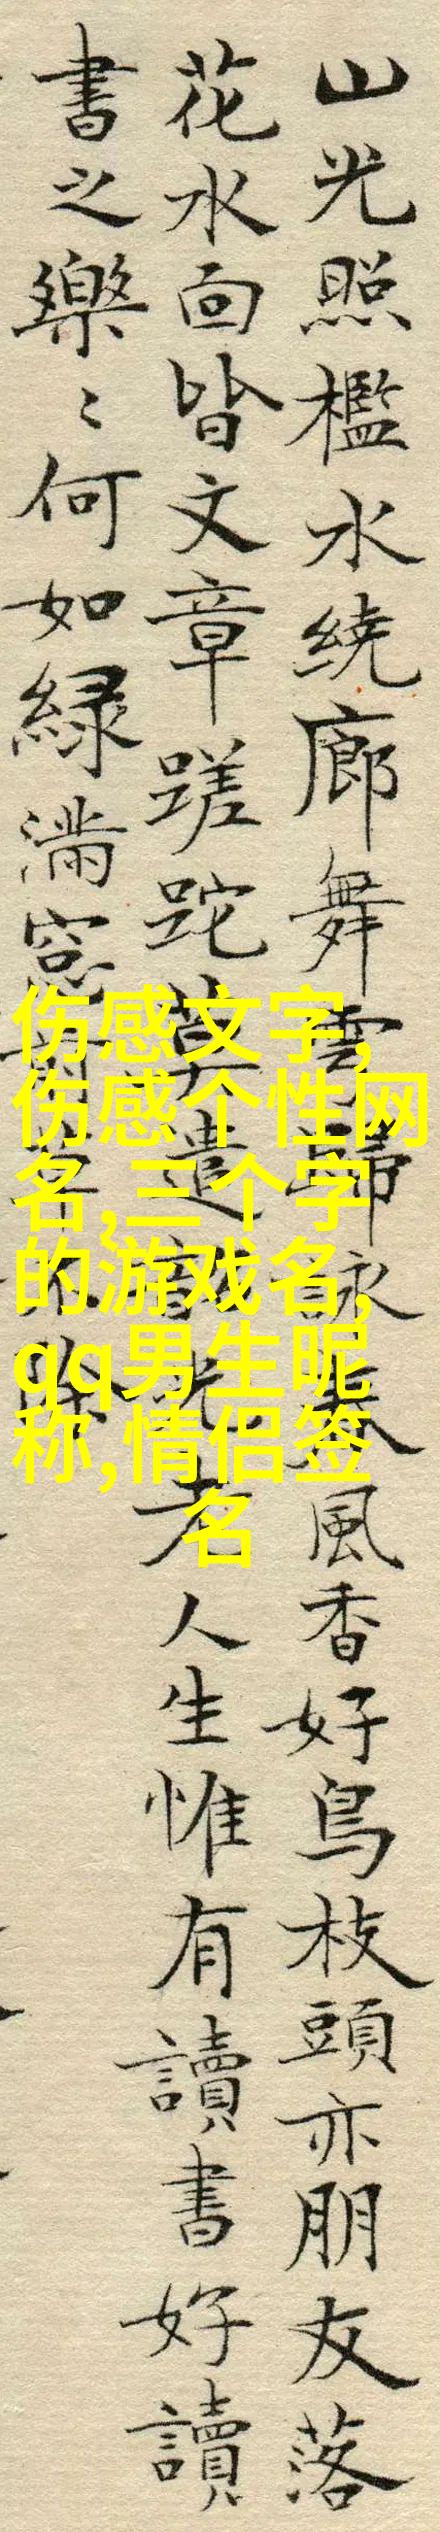 山光照檻水绕廊舞雩歸詠春風香好鳥枝頭亦朋友落
花水面皆文章蹉跎莫遣韶光老人生惟有讀書好讀
書之樂〻何如綠滿窓前草不除
伤感文字,
伤感个性网
名,三个字
的游戏名,
qq男生昵
称,情侣签
名